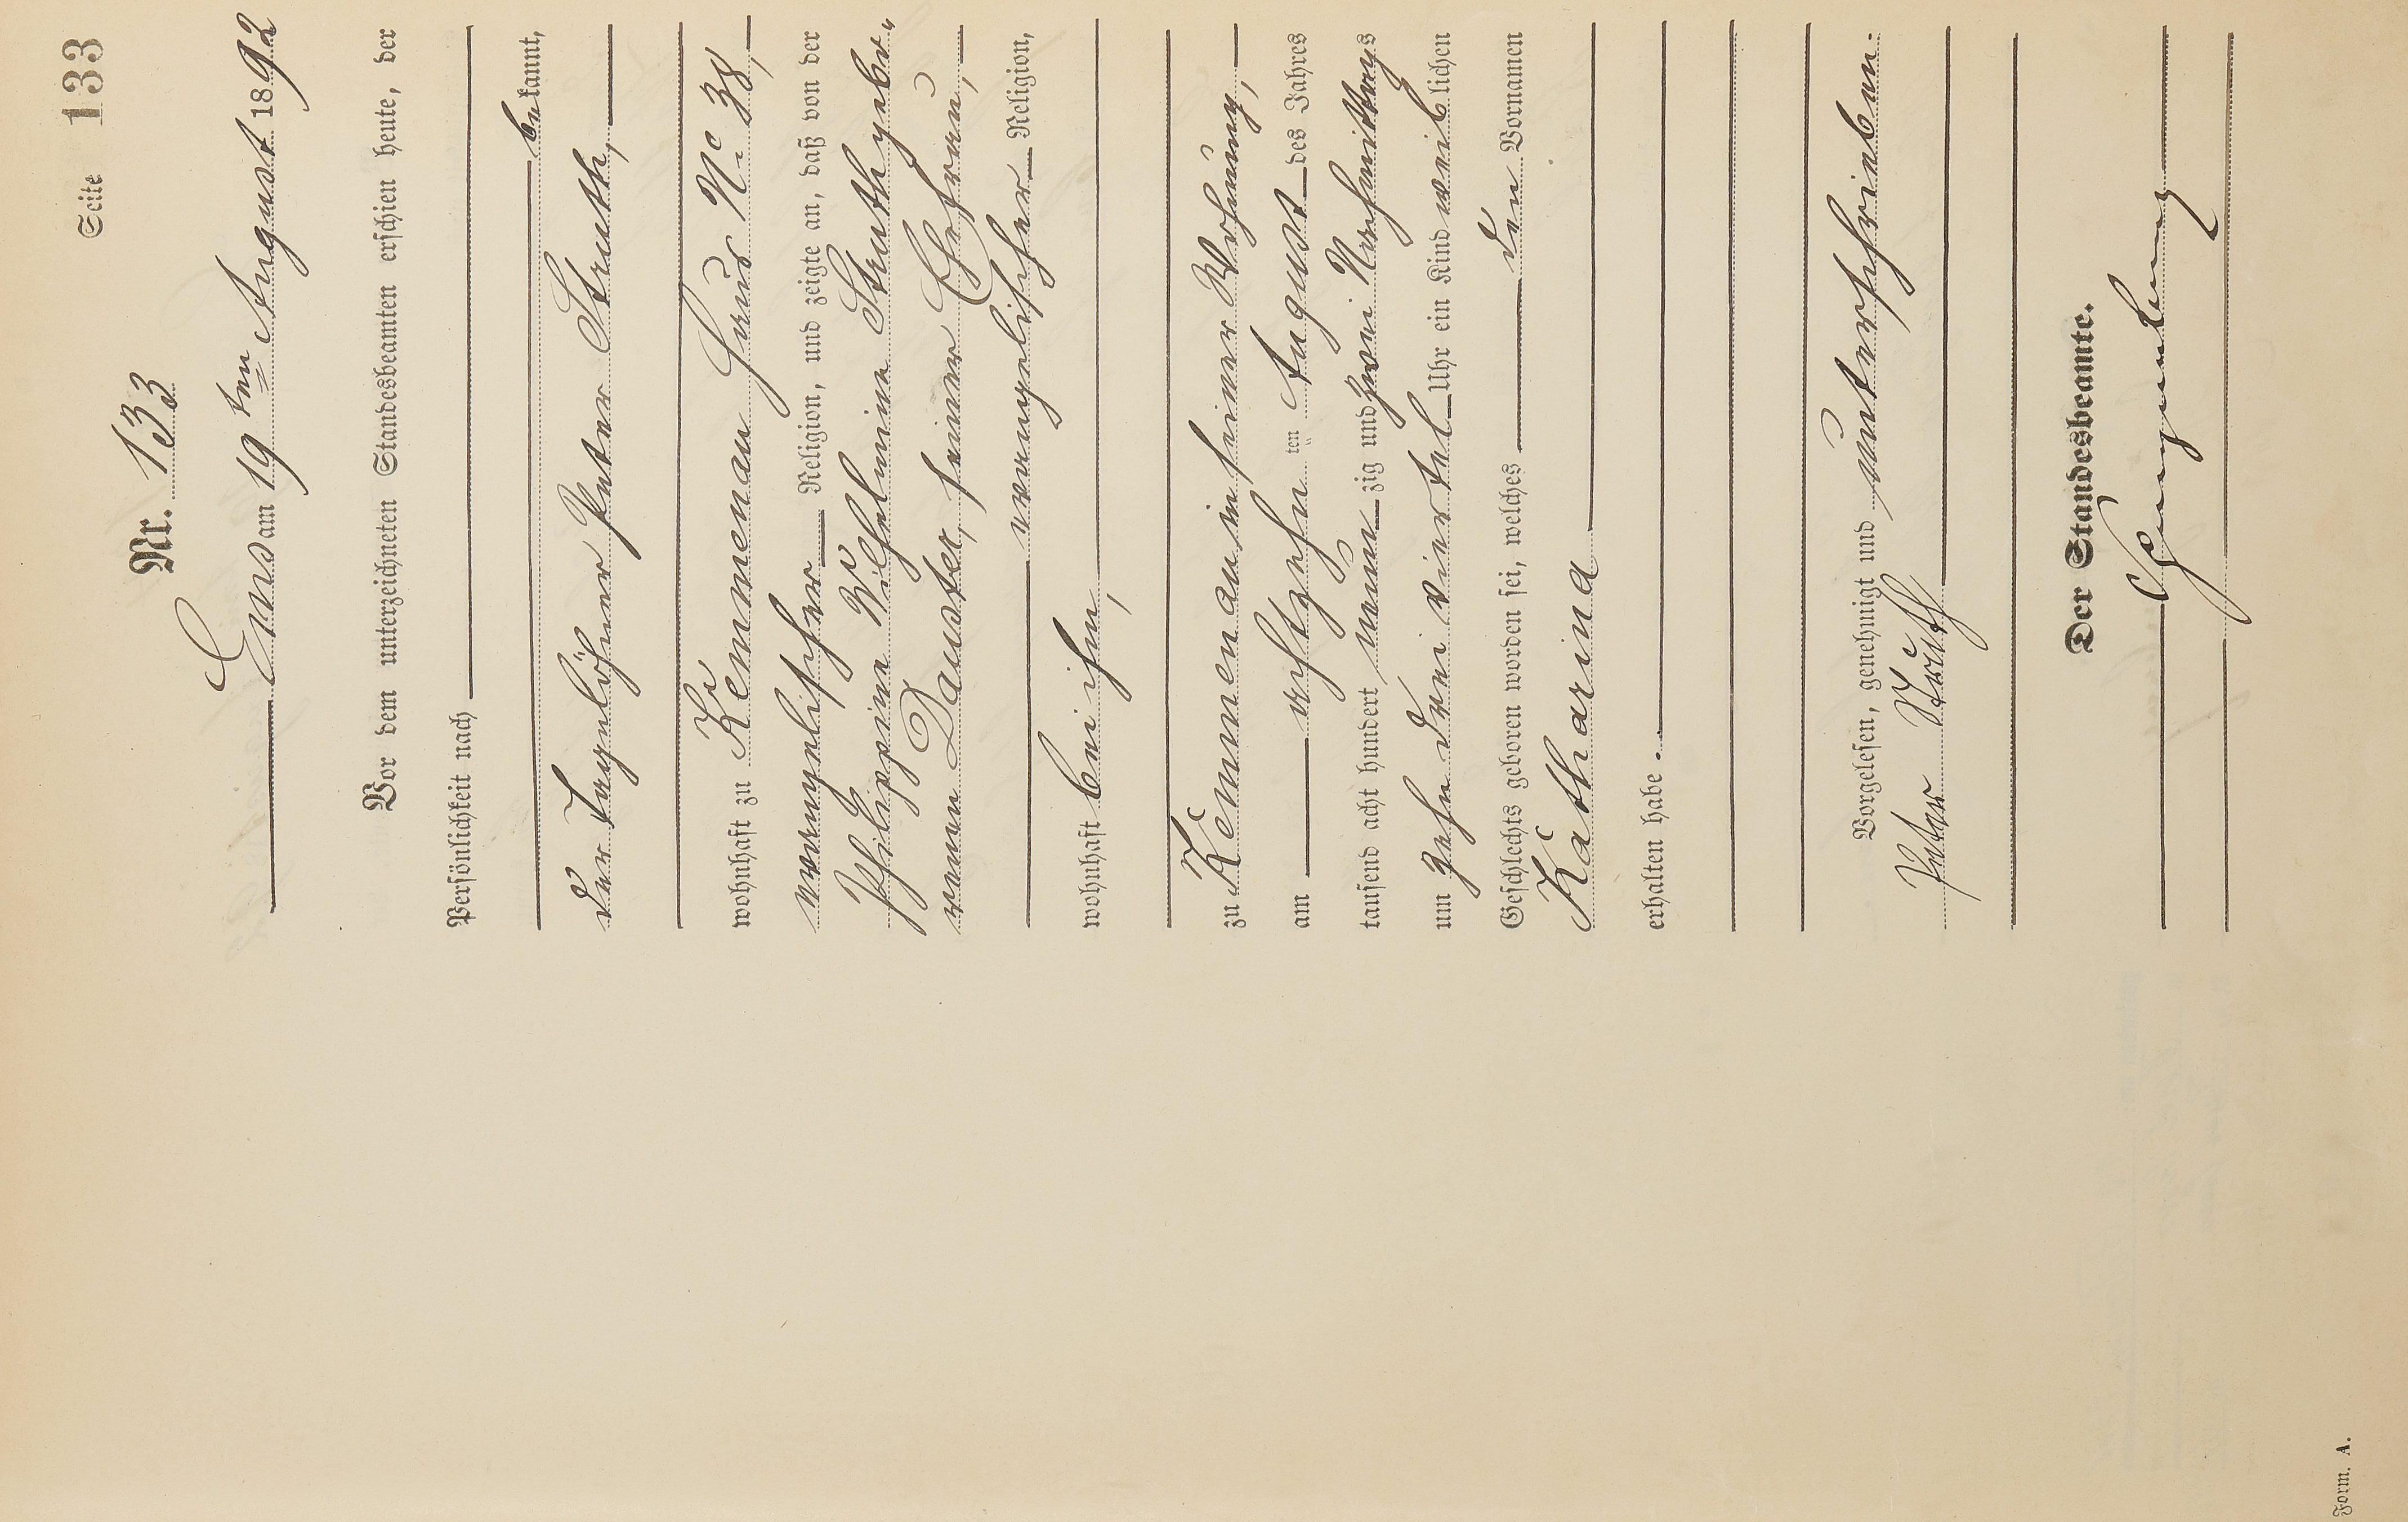 Seite 133
Nr. 133
Ems am 19ten August 1892
Vor dem unterzeichneten Standesbeamten erschien heute, der
Persönlichkeit nach
bekannt,
der Tagelöhner Peter Struth,
wohnhaft zu Kemmenau Haus No 38,
evangelischer Religion, und zeigte an, daß von der
Philippine Wilhelmine Struth gebor„
renen Dauster, seiner Ehefrau,
evangelischer Religion,
wohnhaft bei ihm,
zu Kemmenau in seiner Wohnung,
am achtzehn ten August des Jahres
tausend acht hundert neun zig und zwei Nachmittags
um zehn drei viertel Uhr ein Kind weiblichen
Geschlechts geboren worden sei, welches den Vornamen
Katharina
erhalten habe.
Vorgelesen, genehmigt und unterschrieben.
Peter Struth
Der Standesbeamte.
Form. A.